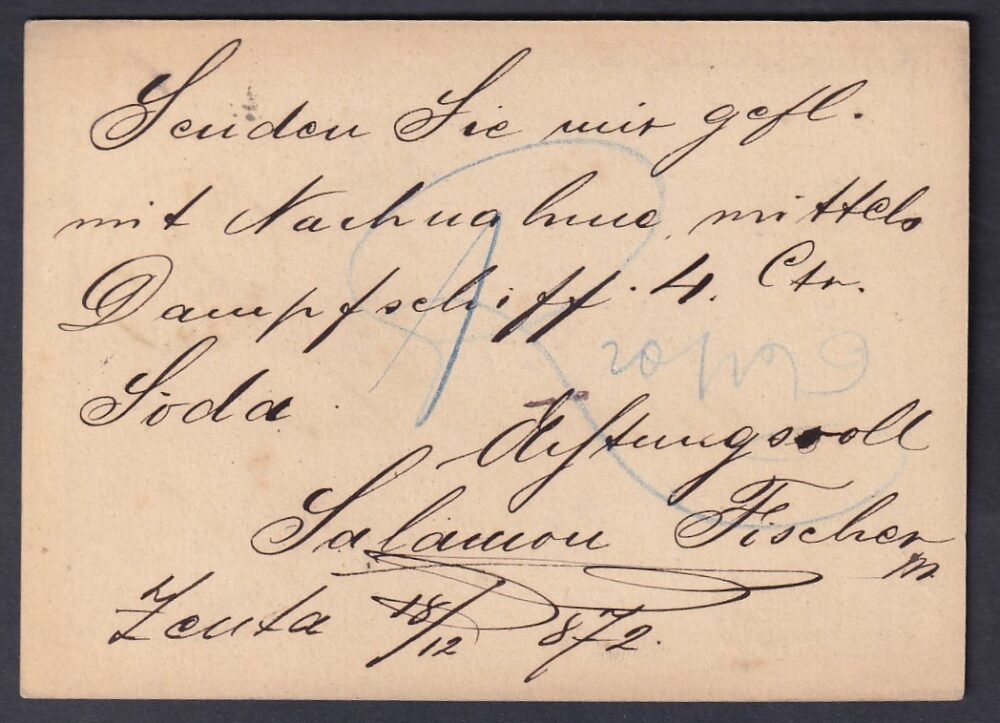 Senden Sie mir gefl.
mit Nachnahme, mittels
Dampfschiff. 4. Ctr.
Soda
Achtungsvoll
Salamon Fischer
Zenta 18/12 872.